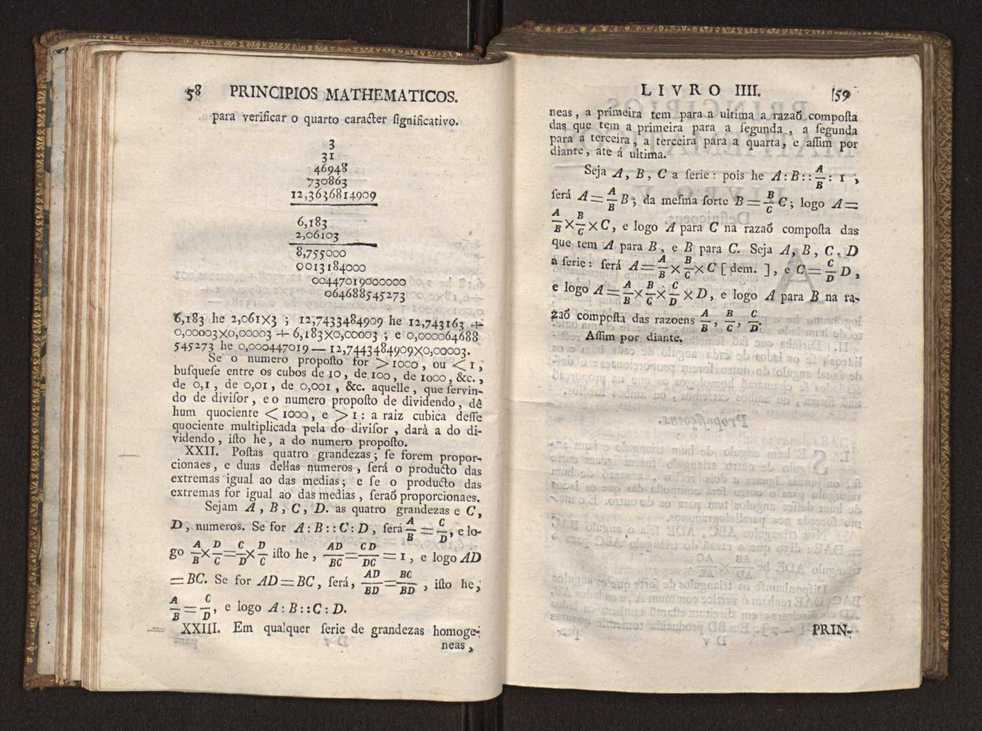 58 PRINCIPIOS MATHEMATICOS.
para verificar o quarto caracter ſignificativo.
3
31
46948
730863
12,3636814909
6,183
2,06103
8,755000
0013184000
00447019000000
064688545273
6,183 he 2,061×3 ; 12,7433484909 he 12,743163 +
0,00003×0,00003 + 6,183×0,00003 ; e 0,000064688
545273 he 0,000447019 — 12,7443484909×0,00003.
Se o numero propoſto for > 1000, ou < 1,
buſqueſe entre os cubos de 10, de 100, de 1000, &c.,
de 0,1, de 0,01, de 0,001, &c. aquelle, que ſervin-
do de diviſor, e o numero propoſto de dividendo, dê
hum quociente < 1000, e > 1 : a raiz cubica deſſe
quociente multiplicada pela do diviſor, dará a do di-
videndo, iſto he, a do numero propoſto.
XXII. Poſtas quatro grandezas; ſe forem propor-
cionaes, e duas dellas numeros, ſerá o producto das
extremas igual ao das medias; e ſe o producto das
extremas for igual ao das medias, ſeraõ proporcionaes.
Sejam A, B, C, D. as quatro grandezas e C,
D, numeros. Se for A:B::C:D, ſerá A/B = C/D, e lo-
go A/B × D/C = C/D × D/C iſto he, AD/BC = CD/DC = 1, e logo AD
= BC. Se for AD = BC, ſerá, AD/BD = BC/BD, iſto he,
A/B = C/D, e logo A:B::C:D.
XXIII. Em qualquer ſerie de grandezas homoge-
neas,
LIVRO IIII. 59
neas, a primeira tem para a ultima a razaõ compoſta
das que tem a primeira para a ſegunda, a ſegunda
para a terceira, a terceira para a quarta, e aſſim por
diante, até á ultima.
Seja A, B, C a ſerie: pois he A:B::A/B:1,
ſerá A = A/B B; da meſma ſorte B = B/C C; logo A =
A/B × B/C × C, e logo A para C na razaõ compoſta das
que tem A para B, e B para C. Seja A, B, C, D
a ſerie: ſerá A = A/B × B/C × C [dem.], e C = C/D D,
e logo A = A/B × B/C × C/D × D, e logo A para B na ra-
zaõ compoſta das razoens A/B, B/C, C/D.
Aſſim por diante.
PRIN-